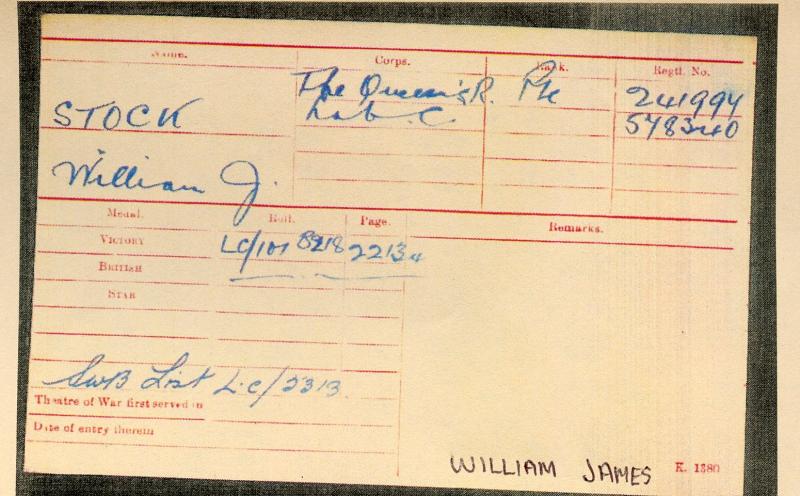 Name. Corps. Rank. Regtl. No.
The Queen's R. Pte 241994
STOCK Lab. C. 578340
William J.
Medal. Roll. Page. Remarks.
VICTORY LC/101 B218 22134
BRITISH
STAR
SWB List LC/2313.
Theatre of War first served in
Date of entry therein
WILLIAM JAMES K. 1380